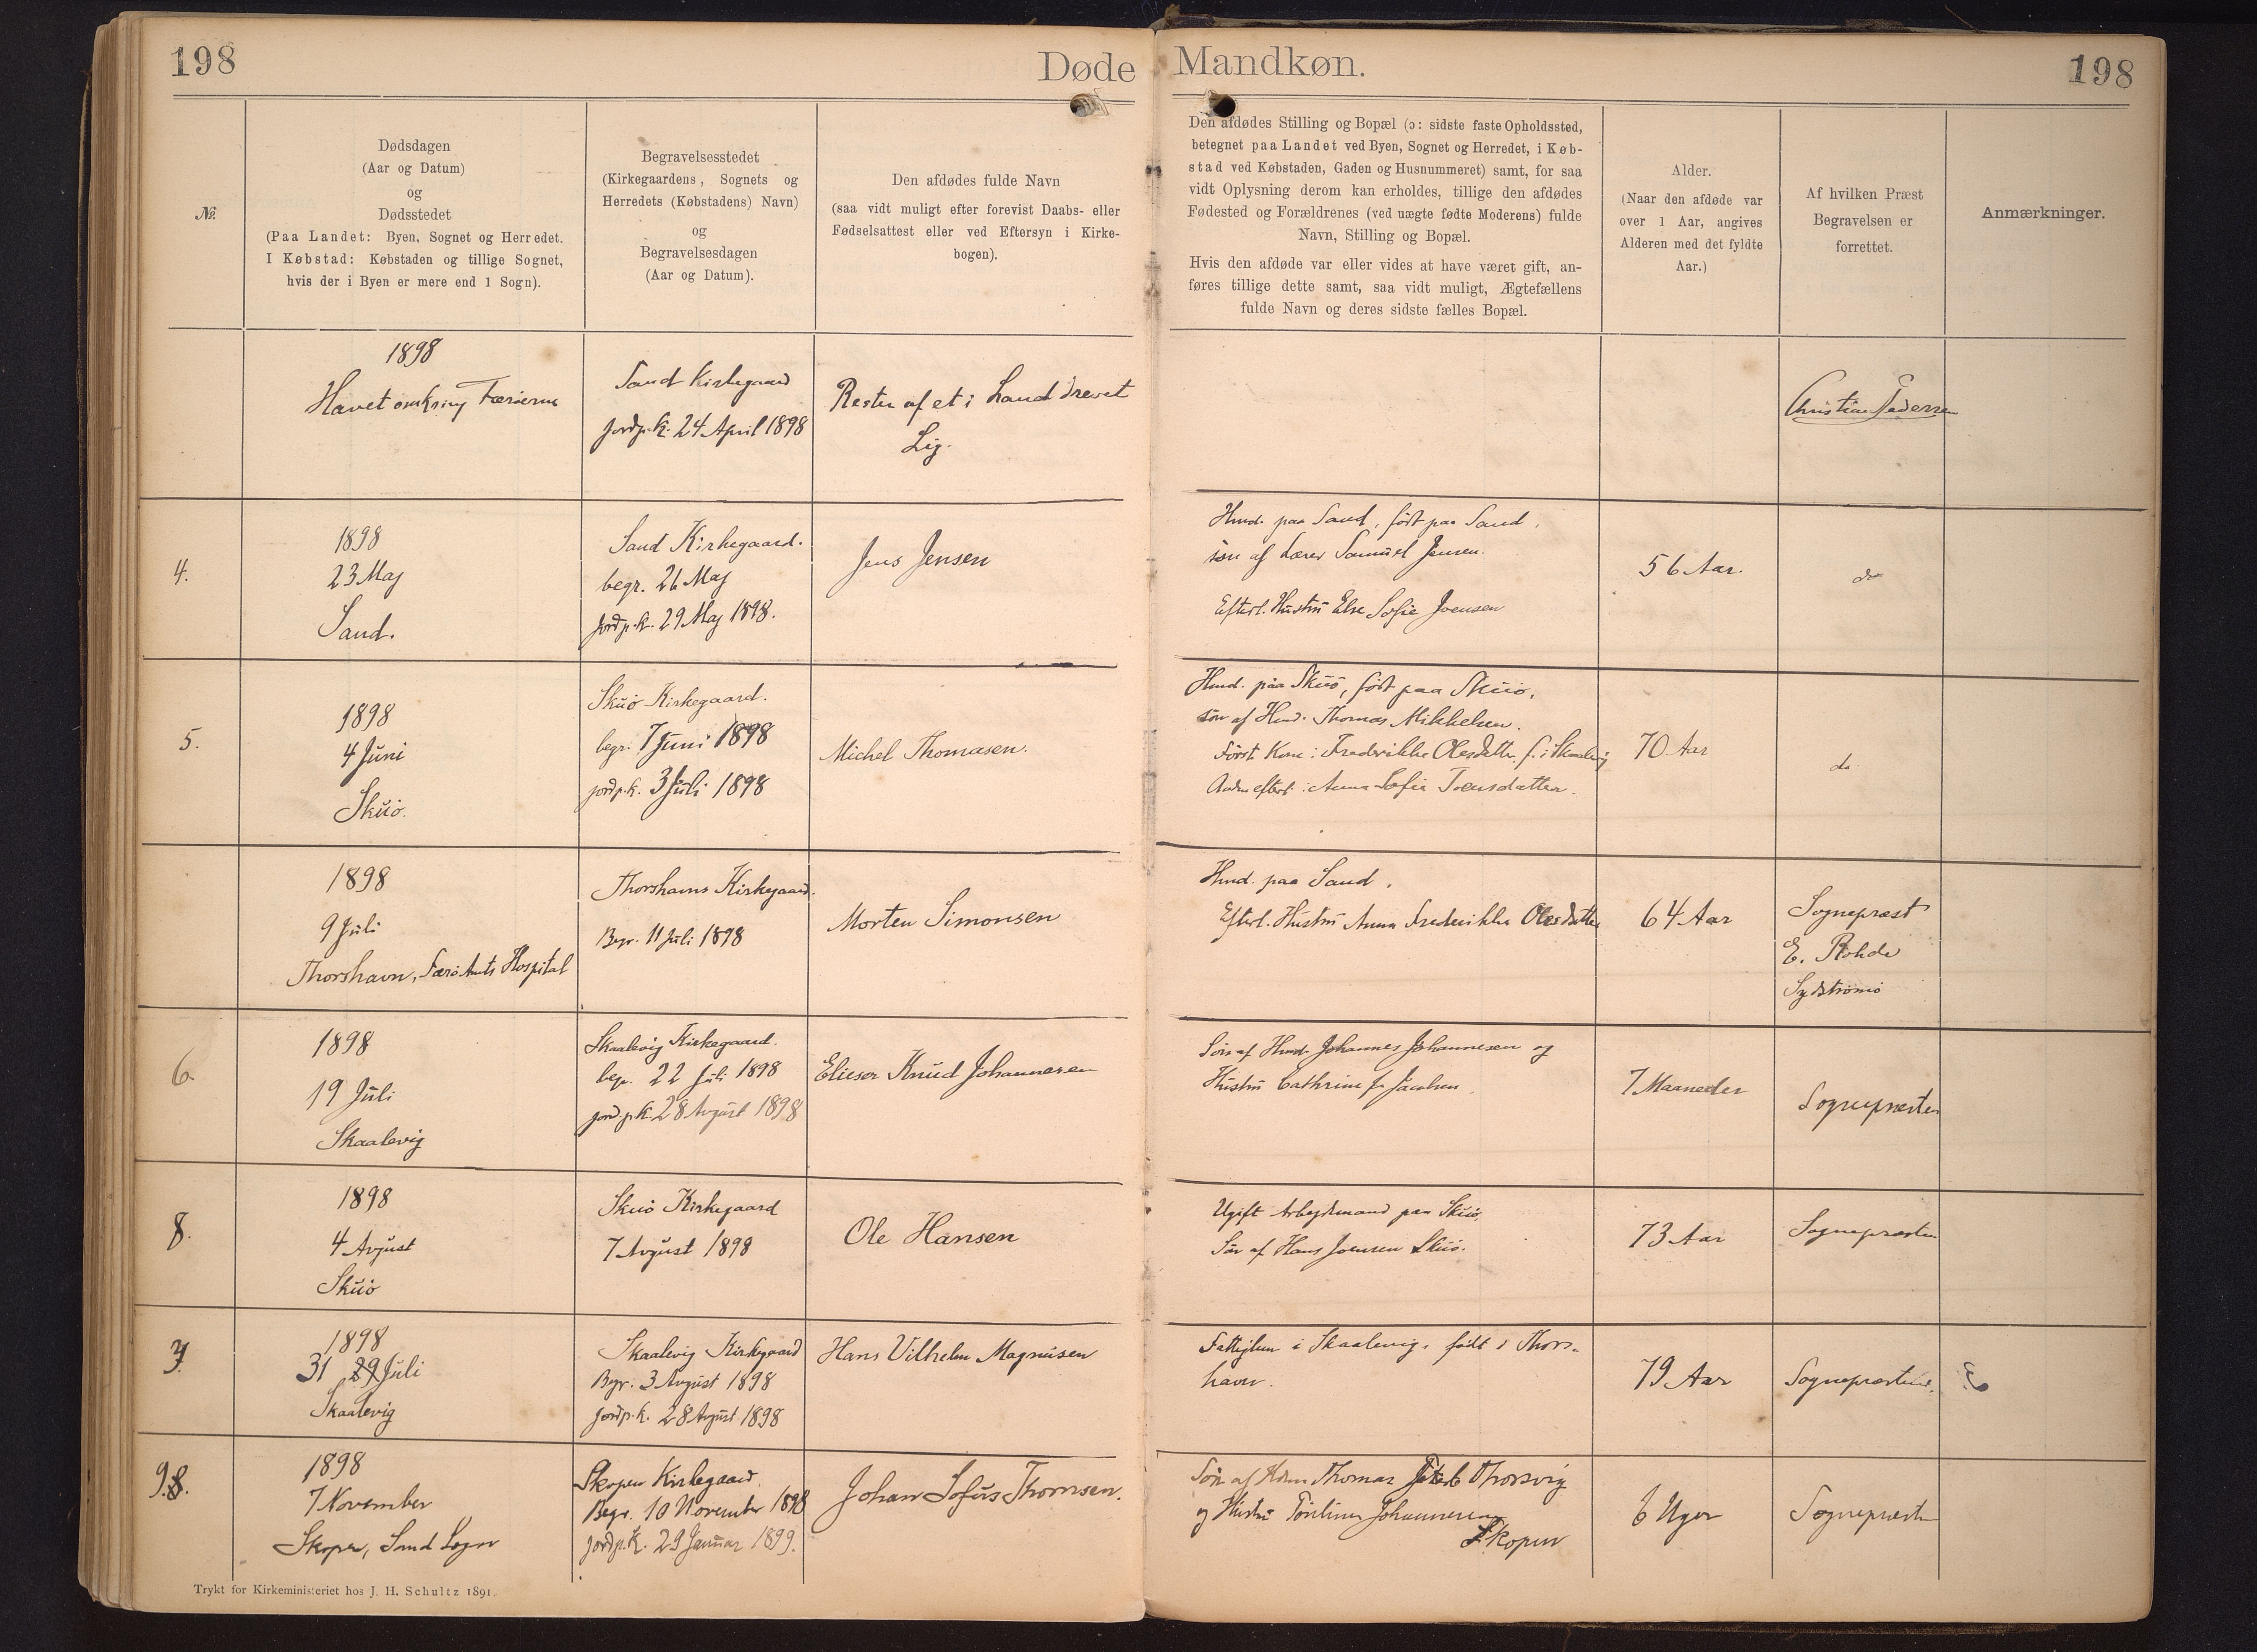 198
Døde
Mandkøn.
198
№.
Dødsdagen
(Aar og Datum)
og
Dødsstedet
(Paa Landet: Byen, Sognet og Herredet.
I Købstad: Købstaden og tillige Sognet,
hvis der i Byen er mere end 1 Sogn).
Begravelsesstedet
(Kirkegaardens, Sognets og
Herredets (Købstadens) Navn)
og
Begravelsesdagen
(Aar og Datum).
Den afdødes fulde Navn
(saa vidt muligt efter forevist Daabs- eller
Fødselsattest eller ved Eftersyn i Kirke-
bogen).
Den afdødes Stilling og Bopæl (ɔ: sidste faste Opholdssted,
betegnet paa Landet ved Byen, Sognet og Herredet, i Køb-
stad ved Købstaden, Gaden og Husnummeret) samt, for saa
vidt Oplysning derom kan erholdes, tillige den afdødes
Fødested og Forældrenes (ved uægte fødte Moderens) fulde
Navn, Stilling og Bopæl.
Hvis den afdøde var eller vides at have været gift, an-
føres tillige dette samt, saa vidt muligt, Ægtefællens
fulde Navn og deres sidste fælles Bopæl.
Alder.
(Naar den afdøde var
over 1 Aar, angives
Alderen med det fyldte
Aar.)
Af hvilken Præst
Begravelsen er
forrettet.
Anmærkninger.
1898
Havet omkring Færøerne
Sand Kirkegaard
Jordp.K. 24 April 1898
Rester af et i Land drevet
Lig.
Christian Pedersen
4.
1898
23 Maj
Sand.
Sand Kirkegaard.
begr. 26 Maj
Jordp.K. 29 Maj 1898.
Jens Jensen
Hmd. paa Sand, født paa Sand,
søn af Lærer Samuel Jensen.
Efterl. Hustru Else Sofie Joensen
56 Aar.
do
5.
1898
4 Juni
Skuø.
Skuø Kirkegaard.
begr. 7 Juni 1898
jordp.k. 3 Juli 1898
Michel Thomasen.
Hmd. paa Skuø, født paa Skuø,
søn af Hmd. Thomas Mikkelsen.
Først Kone: Frederikke Olesdatter f. i Skaalevig
Anden efterl: Anna Sofie Joensdatter.
70 Aar
do.
1898
9 Juli
Thorshavn, Færø Amts Hospital
Thorshavns Kirkegaard.
Begr. 11 Juli 1898
Morten Simonsen
Hmd. paa Sand.
Efterl. Hustru Anna Frederikke Olesdatter
64 Aar
Sognepræst
E. Rohde
Sydstrømø
6.
1898
19 Juli
Skaalevig
Skaalevig Kirkegaard.
begr. 22 Juli 1898
jord.p.K. 28 Avgust 1898
Elieser Knud Johannesen
Søn af Hmd. Johannes Johannesen og
Hustru Cathrine f. Jacobsen.
7 Maaneder
Sognepræsten
8.
1898
4 Avgust
Skuø
Skuø Kirkegaard
7 Avgust 1898
Ole Hansen
Ugift Arbejdsmand paa Skuø,
Søn af Hans Joensen Skuø.
73 Aar
Sognepræsten
7.
1898
31 29 Juli
Skaalevig
Skaalevig Kirkegaard
Begr. 3 Avgust 1898
Jordp.k. 28 Avgust 1898
Hans Vilhelm Magnusen
Fattiglem i Skaalevig, født i Thors-
havn.
79 Aar
Sognepræsten
9.8.
1898
7 November
Skopen, Sand Sogn
Skopen Kirkegaard.
Begr. 10 November 1898
Jordp.K. 29 Januar 1899.
Johan Sofus Thomsen.
Søn af Hdm Thomas Jakob Thorsvig
og Hustru Johannesen
Skopen
6 Uger
Sognepræsten
Trykt for Kirkeministeriet hos J. H. Schultz 1891.